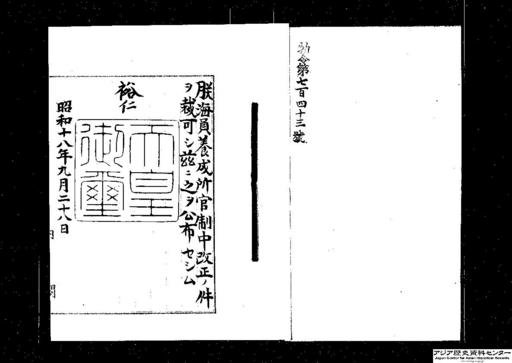 勅令第七百四十三號
朕海員養成所官制中改正ノ件
ヲ裁可シ茲ニ之ヲ公布セシム
裕仁
天皇
御璽
昭和十八年九月二十八日
アジア歴史資料センター
Japan Center for Asian Historical Records